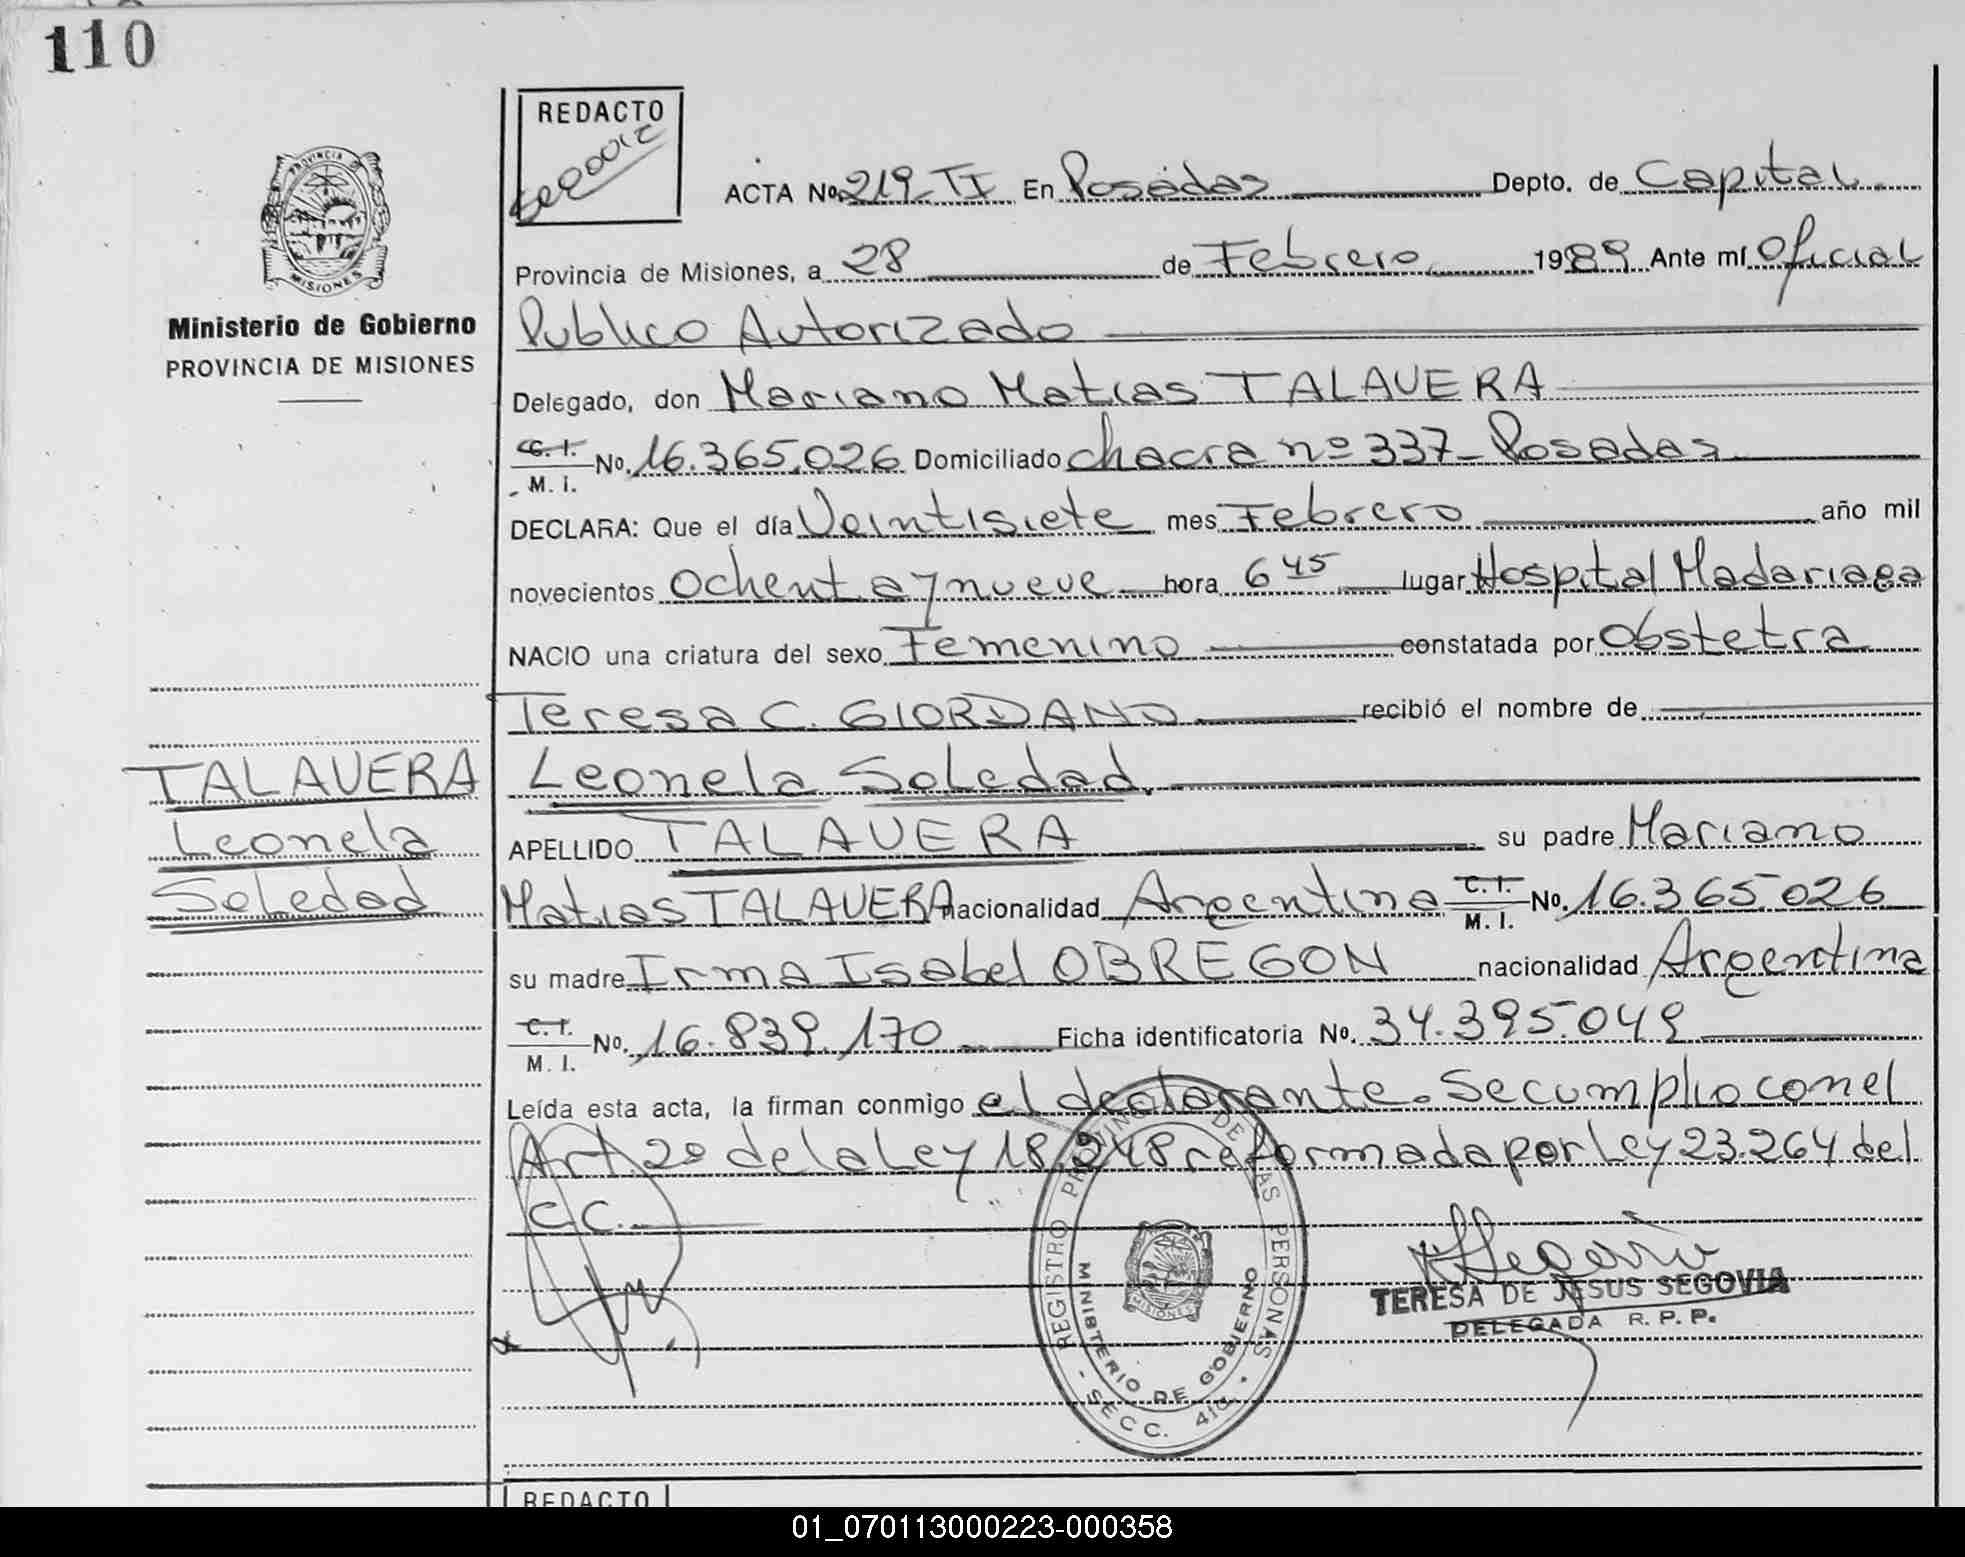 110
REDACTO
ACTA No. 219-TI En Posadas Depto. de Capital
Provincia de Misiones, a 28 de Febrero 1989 Ante mí Oficial
Publico Autorizado
Delegado, don Mariano Matias TALAVERA
C.I. M.I. No. 16.365.026 Domiciliado chacra nº 337- Posadas
DECLARA: Que el día Veintisiete mes Febrero año mil
novecientos ochenta y nueve hora 6 45 lugar Hospital Madariaga
NACIO una criatura del sexo Femenino constatada por Obstetra
Teresa C. GIORDANO recibió el nombre de
Leonela Soledad.
APELLIDO TALAVERA su padre Mariano
Matias TALAVERA nacionalidad Argentina C.I. M.I. No. 16.365.026
su madre Irma Isabel OBREGON nacionalidad Argentina
C.I. M.I. No. 16.839.170 Ficha identificatoria No. 34.395.049
Leída esta acta, la firman conmigo el declarante. Se cumplio con el
Art. 2º de la Ley 18.248 reformada por Ley 23.264 del
C.C.
PROVINCIA DE MISIONES
Ministerio de Gobierno
PROVINCIA DE MISIONES
TALAVERA
Leonela
Soledad
REGISTRO PROVINCIAL DE LAS PERSONAS
MINISTERIO DE GOBIERNO
MISIONES
- SECC. 4ta. -
TERESA DE JESUS SEGOVIA
DELEGADA R. P. P.
REDACTO
01_070113000223-000358